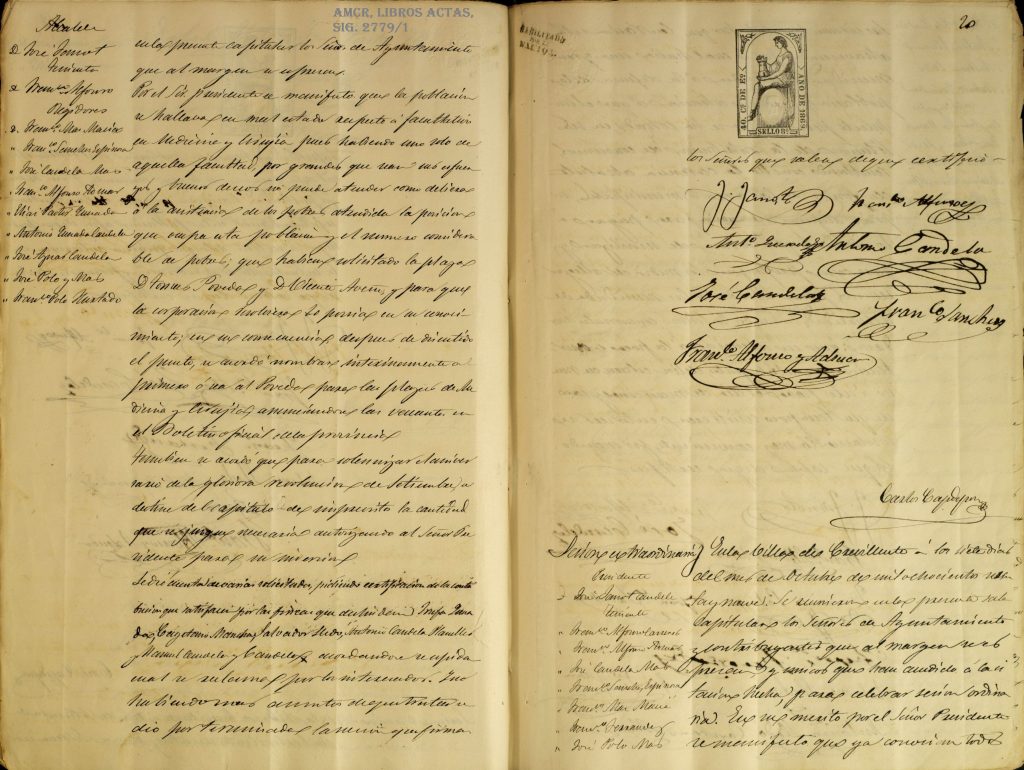 AMCR, LIBROS ACTAS,
SIG. 2779/1
Alcalde
D. José
Teniente
D. Franco. Alfonso
Regidores
D. Franco. Mas Macia
" Franco. Sanchez Espinosa
" José Candela Mas
" Franco. Alfonso
" Pastor Quesada
" Antonio Quesada Candela
" José Aznar Candela
" José Polo y Mas
" Franco. Polo Hurtado
en la presente capitular los Sres. de Ayuntamiento
que al margen se espresan
Por el Sor. presidente se manifestó que la poblacion
se hallaba en mal estado respecto á facultativos
en Medicina y Cirugia pues habiendo uno solo de
aquella facultad, por grandes que sean sus esfuer
zos y buenos deseos no puede atender como debiera
á la asistencia de los pobres atendida la posicion
que ocupa esta poblacion y el numero considera
ble de pobres; que habian solicitado la plaza
D. Tomas Poveda y D. Vicente y para que
la corporacion lo ponia en su conoci
miento; en su consecuencia despues de discutido
el punto, se acordó nombrar interinamente al
primero ó sea al Poveda para las plazas de Me
dicina y Cirugia, anunciandose las vacantes en
el Boletin oficial de la provincia
Tambien se acordó que para solemnizar el aniver
sario de la gloriosa revolucion de Setiembre, se
destine del Capitulo de imprevistos la cantidad
que se juzgue necesaria autorizando al Señor Pre
sidente para su inversion
Se dió cuenta de varias solicitudes pidiendo certificacion de la contri
bucion que satisfacen por las fincas que destinden Josefa Quesa
da, Cayetano Salvador Antonio Candela
y Manuel Candela y Candela, acordandose se espida
cual se reclama por los interesados. Y no
habiendo mas asuntos de que tratar se
dio por terminada la sesion y en firman
HABILITADO
POR LA
NACION.
20
40 Cs. DE Eo.
AÑO DE 1869
SELLO 9o.
los Señores que saben de que certifico
Franco. Alfonso
Anto. Quesada
Antonio Candela
José Candela
Franco. Sanchez
Franco. Alfonso y
Carlos
Sesion extraordinaria
Presidente
D. José Candela
Teniente
" Franco. Alfonso
" Franco. Alfonso
" José Candela Mas
" Franco. Sanchez Espinosa
" Franco. Mas Macia
" Franco. Fernandez
" José Polo Mas
En la Villa de Crevillente á los siete dias
del mes de Octubre de mil ochocientos sesen
ta y nueve: Se reunieron en la presente sala
Capitular los Señores de Ayuntamiento
y contribuyentes que al margen se es
presan, y unicos que han acudido á la ci
tacion hecha, para celebrar sesion ordina
ria. En su merito por el Señor Presidente
se manifestó que ya conocian todos